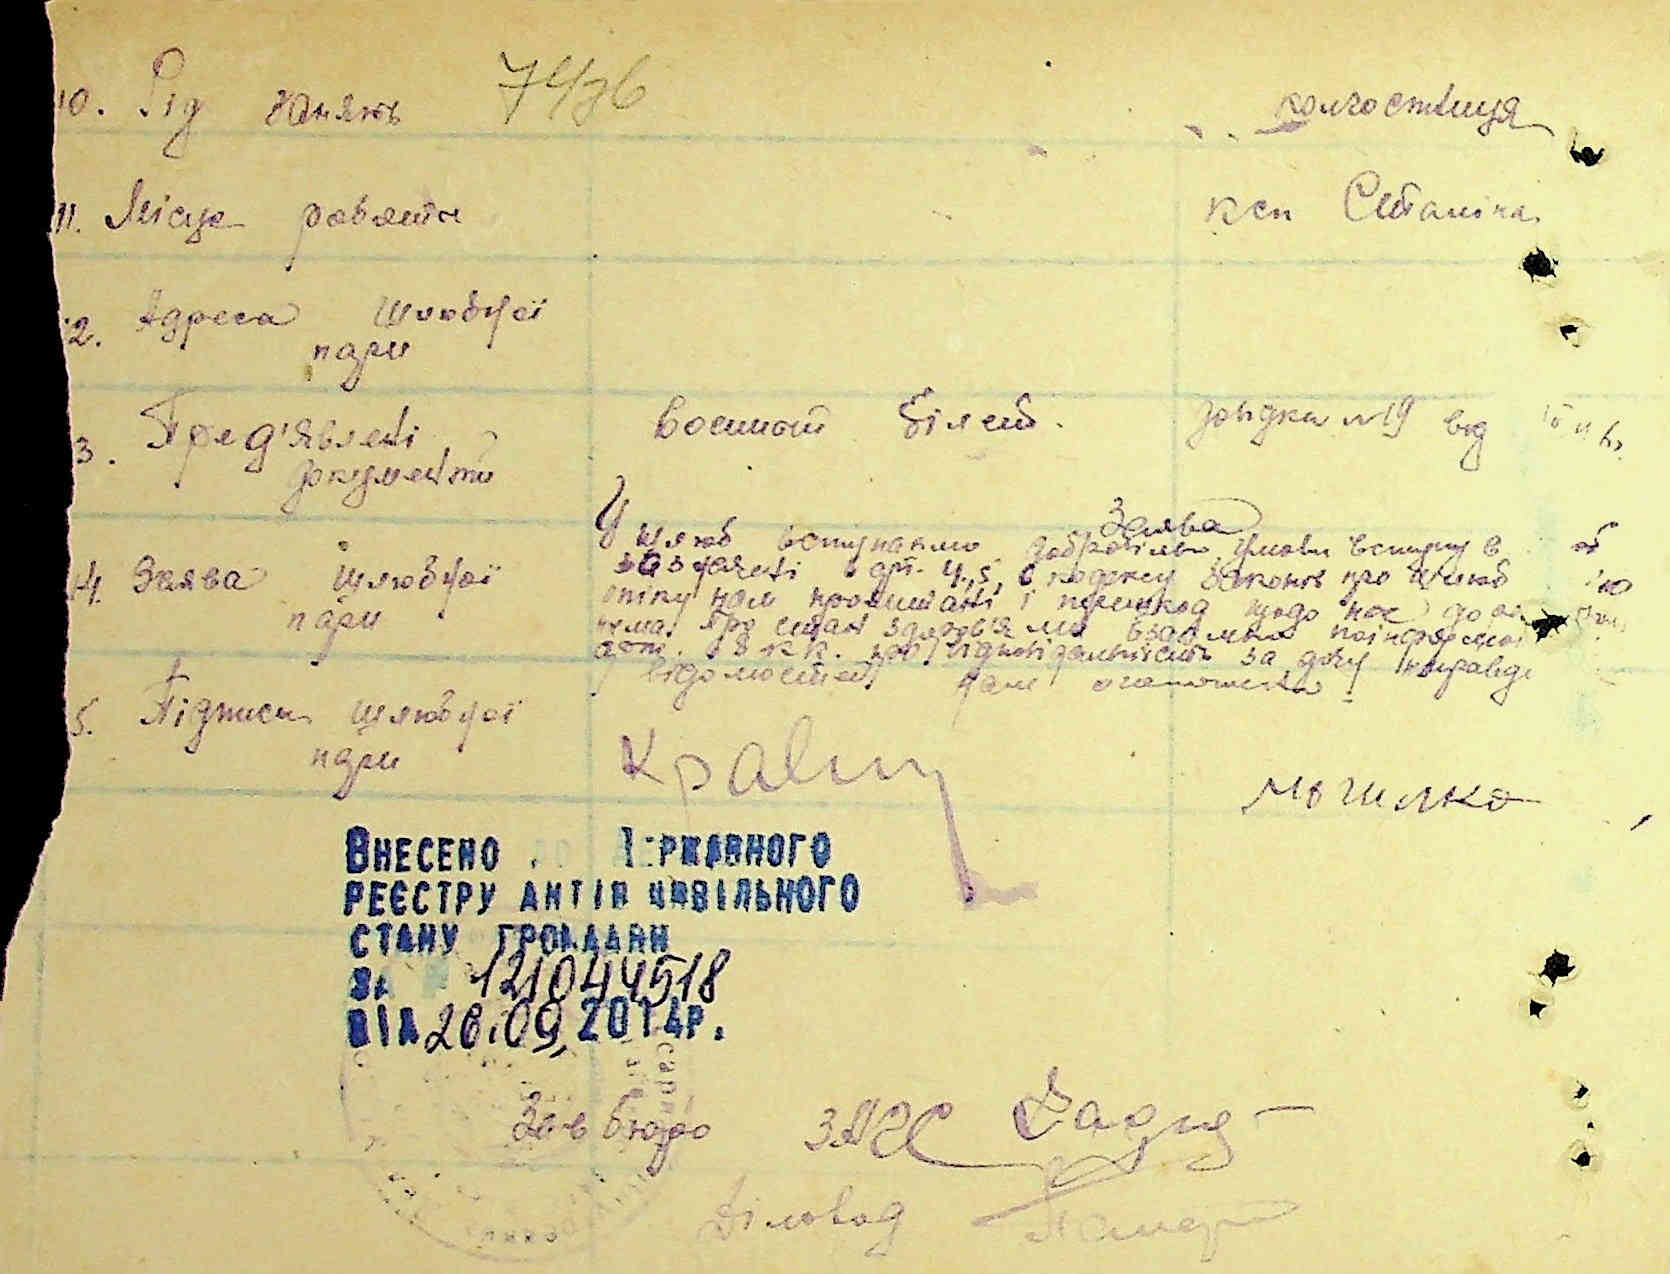 10. Рід занять 74зв колгоспниця
11. Місце роботи ксп Сталіна
12. Адреса шлюбної
пари
3. Пред'явлені воєнной білет. довідка №19 від
документи
Заява
У шлюб вступаємо добровільно, умови вступу в
14. Заява шлюбної зазначені арт. 4, 5, кодексу законів про шлюб
пари опіку нам прочитані і перешкод щодо нас
нема. Про стан здоров'я ми взаємно поінформовані
КК. про відповідальність за дачу неправди
відомостей нам оголошена
5. Підписи шлюбної
пари Кравец Могилко
Внесено до Державного
реєстру актів цивільного
стану громадян
за № 121044518
від 26.09.2014р.
Зав бюро ЗАГС
Діловод